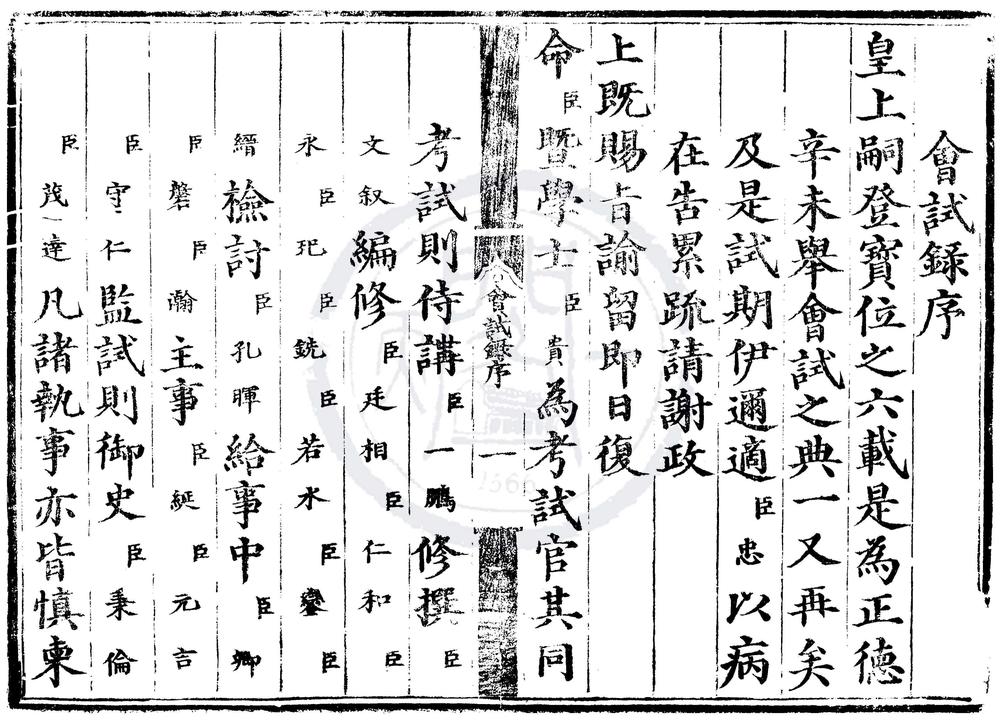 會試錄序
皇上嗣登寶位之六載是為正德
辛未舉會試之典一又再矣
及是試期伊邇適臣忠以病
在告累疏請謝政
上既賜旨諭留即日復
命臣暨學士臣貴為考試官其同
會試錄序 一
考試則侍講臣一鵬修撰臣
文叙編修臣廷相臣仁和臣
永臣玘臣銑臣若水臣鑾臣
縉檢討臣孔暉給事中臣卿
臣磐臣瀚主事臣綖臣元吉
臣守仁監試則御史臣秉倫
臣茂達凡諸執事亦皆慎柬
1366